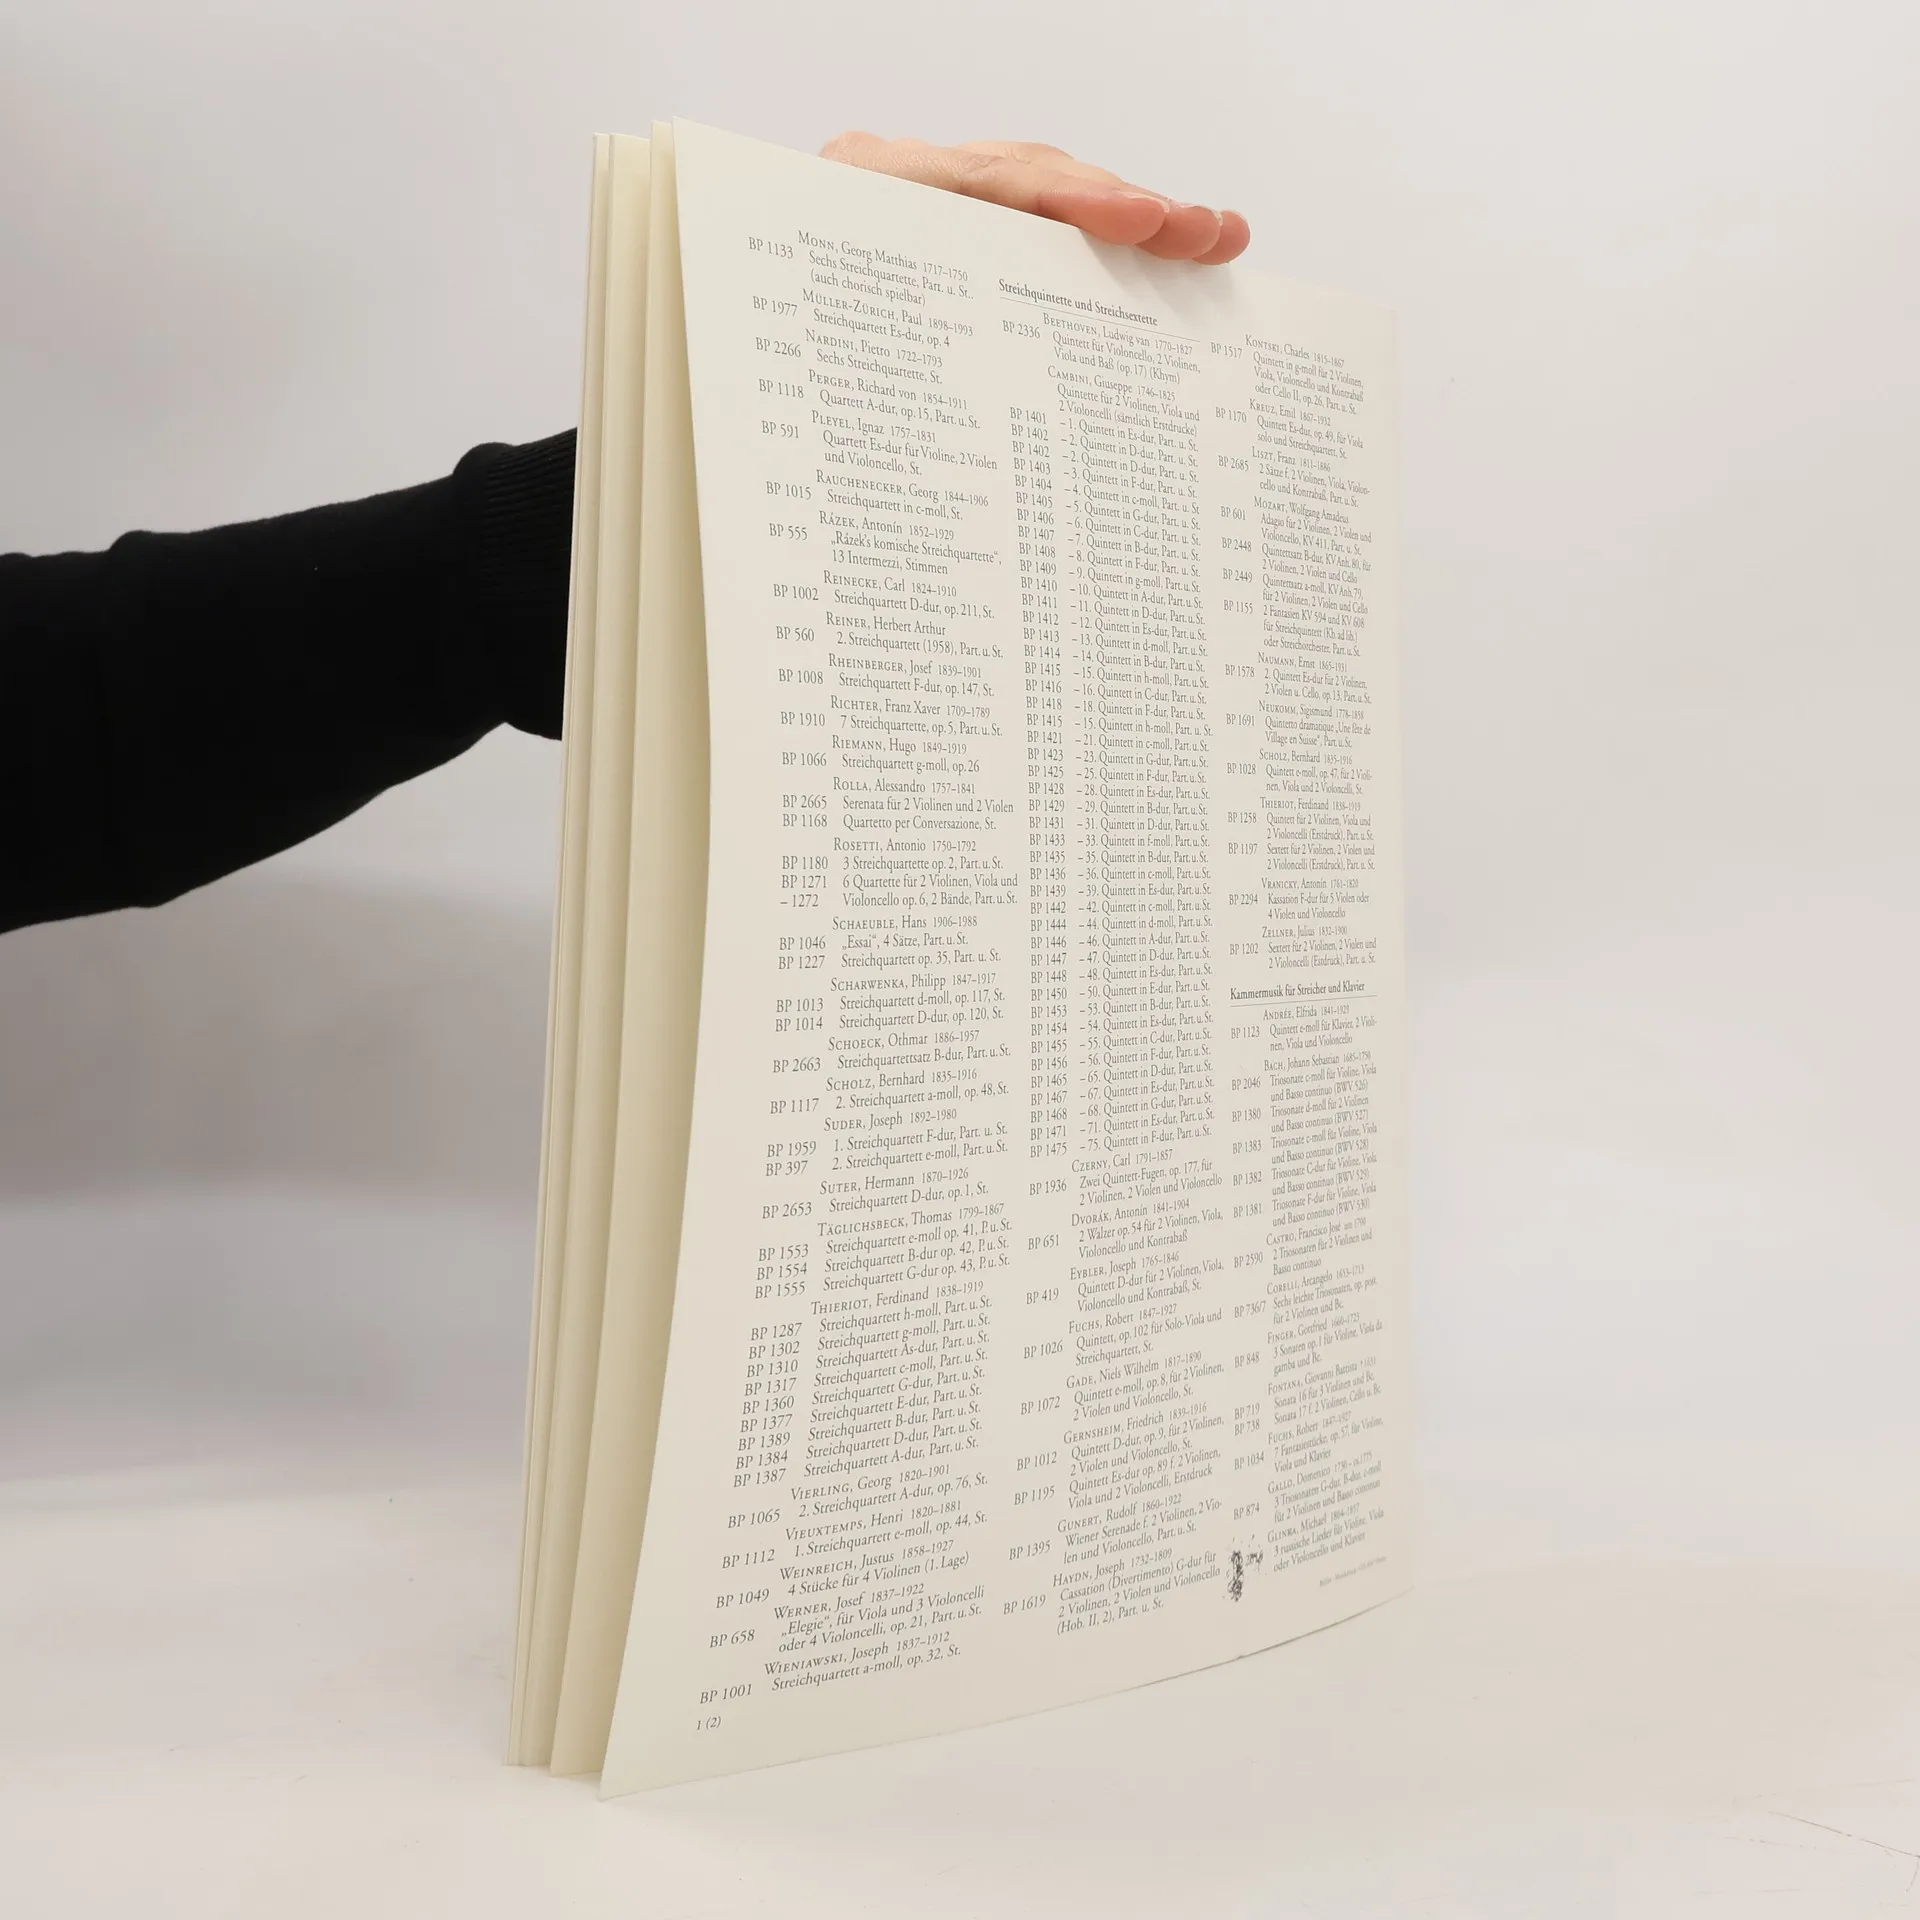 MONN, Georg Matthias 1717–1750
BP 1133 Sechs Streichquartette, Part. u. St..
(auch chorisch spielbar)
MÜLLER-ZÜRICH, Paul 1898–1993
BP 1977 Streichquartett Es-dur, op. 4
NARDINI, Pietro 1722–1793
BP 2266 Sechs Streichquartette, St.
PERGER, Richard von 1854–1911
BP 1118 Quartett A-dur, op. 15, Part. u. St.
PLEYEL, Ignaz 1757–1831
BP 591 Quartett Es-dur für Violine, 2 Violen
und Violoncello, St.
RAUCHENECKER, Georg 1844–1906
BP 1015 Streichquartett in c-moll, St.
RÁZEK, Antonín 1852–1929
BP 555 „Rázek's komische Streichquartette“,
13 Intermezzi, Stimmen
REINECKE, Carl 1824–1910
BP 1002 Streichquartett D-dur, op. 211, St.
REINER, Herbert Arthur
BP 560 2. Streichquartett (1958), Part. u. St.
RHEINBERGER, Josef 1839–1901
BP 1008 Streichquartett F-dur, op. 147, St.
RICHTER, Franz Xaver 1709–1789
BP 1910 7 Streichquartette, op. 5, Part. u. St.
RIEMANN, Hugo 1849–1919
BP 1066 Streichquartett g-moll, op. 26
ROLLA, Alessandro 1757–1841
BP 2665 Serenata für 2 Violinen und 2 Violen
BP 1168 Quartetto per Conversazione, St.
ROSETTI, Antonio 1750–1792
BP 1180 3 Streichquartette op. 2, Part. u. St.
BP 1271 6 Quartette für 2 Violinen, Viola und
– 1272 Violoncello op. 6, 2 Bände, Part. u. St.
SCHAEUBLE, Hans 1906–1988
BP 1046 „Essai“, 4 Sätze, Part. u. St.
BP 1227 Streichquartett op. 35, Part. u. St.
SCHARWENKA, Philipp 1847–1917
BP 1013 Streichquartett d-moll, op. 117, St.
BP 1014 Streichquartett D-dur, op. 120, St.
SCHOECK, Othmar 1886–1957
BP 2663 Streichquartettsatz B-dur, Part. u. St.
SCHOLZ, Bernhard 1835–1916
BP 1117 2. Streichquartett a-moll, op. 48, St.
SUDER, Joseph 1892–1980
BP 1959 1. Streichquartett F-dur, Part. u. St.
BP 397 2. Streichquartett e-moll, Part. u. St.
SUTER, Hermann 1870–1926
BP 2653 Streichquartett D-dur, op. 1, St.
TÄGLICHSBECK, Thomas 1799–1867
BP 1553 Streichquartett e-moll op. 41, P. u. St.
BP 1554 Streichquartett B-dur op. 42, P. u. St.
BP 1555 Streichquartett G-dur op. 43, P. u. St.
THIERIOT, Ferdinand 1838–1919
BP 1287 Streichquartett h-moll, Part. u. St.
BP 1302 Streichquartett g-moll, Part. u. St.
BP 1310 Streichquartett As-dur, Part. u. St.
BP 1317 Streichquartett c-moll, Part. u. St.
BP 1360 Streichquartett G-dur, Part. u. St.
BP 1377 Streichquartett E-dur, Part. u. St.
BP 1389 Streichquartett B-dur, Part. u. St.
BP 1384 Streichquartett D-dur, Part. u. St.
BP 1387 Streichquartett A-dur, Part. u. St.
VIERLING, Georg 1820–1901
BP 1065 2. Streichquartett A-dur, op. 76, St.
VIEUXTEMPS, Henri 1820–1881
BP 1112 1. Streichquartett e-moll, op. 44, St.
WEINREICH, Justus 1858–1927
BP 1049 4 Stücke für 4 Violinen (1. Lage)
WERNER, Josef 1837–1922
BP 658 „Elegie“, für Viola und 3 Violoncelli
oder 4 Violoncelli, op. 21, Part. u. St.
WIENIAWSKI, Joseph 1837–1912
BP 1001 Streichquartett a-moll, op. 32, St.
1 (2)
Streichquintette und Streichsextette
BEETHOVEN, Ludwig van 1770–1827
BP 2336 Quintett für Violoncello, 2 Violinen,
Viola und Baß (op. 17) (Khym)
CAMBINI, Giuseppe 1746–1825
Quintette für 2 Violinen, Viola und
2 Violoncelli (sämtlich Erstdrucke)
BP 1401 – 1. Quintett in Es-dur, Part. u. St.
BP 1402 – 2. Quintett in D-dur, Part. u. St.
BP 1402 – 2. Quintett in D-dur, Part. u. St.
BP 1403 – 3. Quintett in F-dur, Part. u. St.
BP 1404 – 4. Quintett in c-moll, Part. u. St.
BP 1405 – 5. Quintett in G-dur, Part. u. St.
BP 1406 – 6. Quintett in C-dur, Part. u. St.
BP 1407 – 7. Quintett in B-dur, Part. u. St.
BP 1408 – 8. Quintett in F-dur, Part. u. St.
BP 1409 – 9. Quintett in g-moll, Part. u. St.
BP 1410 – 10. Quintett in A-dur, Part. u. St.
BP 1411 – 11. Quintett in D-dur, Part. u. St.
BP 1412 – 12. Quintett in Es-dur, Part. u. St.
BP 1413 – 13. Quintett in d-moll, Part. u. St.
BP 1414 – 14. Quintett in B-dur, Part. u. St.
BP 1415 – 15. Quintett in h-moll, Part. u. St.
BP 1416 – 16. Quintett in C-dur, Part. u. St.
BP 1418 – 18. Quintett in F-dur, Part. u. St.
BP 1415 – 15. Quintett in h-moll, Part. u. St.
BP 1421 – 21. Quintett in c-moll, Part. u. St.
BP 1423 – 23. Quintett in G-dur, Part. u. St.
BP 1425 – 25. Quintett in F-dur, Part. u. St.
BP 1428 – 28. Quintett in Es-dur, Part. u. St.
BP 1429 – 29. Quintett in B-dur, Part. u. St.
BP 1431 – 31. Quintett in D-dur, Part. u. St.
BP 1433 – 33. Quintett in f-moll, Part. u. St.
BP 1435 – 35. Quintett in B-dur, Part. u. St.
BP 1436 – 36. Quintett in c-moll, Part. u. St.
BP 1439 – 39. Quintett in Es-dur, Part. u. St.
BP 1442 – 42. Quintett in c-moll, Part. u. St.
BP 1444 – 44. Quintett in d-moll, Part. u. St.
BP 1446 – 46. Quintett in A-dur, Part. u. St.
BP 1447 – 47. Quintett in D-dur, Part. u. St.
BP 1448 – 48. Quintett in Es-dur, Part. u. St.
BP 1450 – 50. Quintett in E-dur, Part. u. St.
BP 1453 – 53. Quintett in B-dur, Part. u. St.
BP 1454 – 54. Quintett in Es-dur, Part. u. St.
BP 1455 – 55. Quintett in C-dur, Part. u. St.
BP 1456 – 56. Quintett in F-dur, Part. u. St.
BP 1465 – 65. Quintett in D-dur, Part. u. St.
BP 1467 – 67. Quintett in Es-dur, Part. u. St.
BP 1468 – 68. Quintett in G-dur, Part. u. St.
BP 1471 – 71. Quintett in Es-dur, Part. u. St.
BP 1475 – 75. Quintett in F-dur, Part. u. St.
CZERNY, Carl 1791–1857
BP 1936 Zwei Quintett-Fugen, op. 177, für
2 Violinen, 2 Violen und Violoncello
DVOŘÁK, Antonin 1841–1904
BP 651 2 Walzer op. 54 für 2 Violinen, Viola,
Violoncello und Kontrabaß
EYBLER, Joseph 1765–1846
BP 419 Quintett D-dur für 2 Violinen, Viola,
Violoncello und Kontrabaß, St.
FUCHS, Robert 1847–1927
BP 1026 Quintett, op. 102 für Solo-Viola und
Streichquartett, St.
GADE, Niels Wilhelm 1817–1890
BP 1072 Quintett e-moll, op. 8, für 2 Violinen,
2 Violen und Violoncello, St.
GERNSHEIM, Friedrich 1839–1916
BP 1012 Quintett D-dur, op. 9, für 2 Violinen,
2 Violen und Violoncello, St.
BP 1195 Quintett Es-dur op. 89 f. 2 Violinen,
Viola und 2 Violoncelli, Erstdruck
GUNERT, Rudolf 1860–1922
BP 1395 Wiener Serenade f. 2 Violinen, 2 Vio-
len und Violoncello, Part. u. St.
HAYDN, Joseph 1732–1809
BP 1619 Cassation (Divertimento) G-dur für
2 Violinen, 2 Violen und Violoncello
(Hob. II, 2), Part. u. St.
KONTSKI, Charles 1815–1867
BP 1517 Quintett in g-moll für 2 Violinen,
Viola, Violoncello und Kontrabaß
oder Cello II, op. 26, Part. u. St.
KREUZ, Emil 1867–1932
BP 1170 Quintett Es-dur, op. 49, für Viola
solo und Streichquartett, St.
LISZT, Franz 1811–1886
BP 2685 2 Sätze f. 2 Violinen, Viola, Violon-
cello und Kontrabaß, Part. u. St.
MOZART, Wolfgang Amadeus
BP 601 Adagio für 2 Violinen, 2 Violen und
Violoncello, KV 411, Part. u. St.
BP 2448 Quintettsatz B-dur, KV Anh. 80, für
2 Violinen, 2 Violen und Cello
BP 2449 Quintettsatz a-moll, KV Anh. 79,
für 2 Violinen, 2 Violen und Cello
BP 1155 2 Fantasien KV 594 und KV 608
für Streichquintett (Kb. ad lib.)
oder Streichorchester, Part. u. St.
NAUMANN, Ernst 1865–1931
BP 1578 2. Quintett Es-dur für 2 Violinen,
2 Violen u. Cello, op. 13, Part. u. St.
NEUKOMM, Sigismund 1778–1858
BP 1691 Quintetto dramatique „Une fête de
Village en Suisse“, Part. u. St.
SCHOLZ, Bernhard 1835–1916
BP 1028 Quintett e-moll, op. 47, für 2 Violi-
nen, Viola und 2 Violoncelli, St.
THIERIOT, Ferdinand 1838–1919
BP 1258 Quintett für 2 Violinen, Viola und
2 Violoncelli (Erstdruck), Part. u. St.
BP 1197 Sextett für 2 Violinen, 2 Violen und
2 Violoncelli (Erstdruck), Part. u. St.
VRANICKY, Antonin 1761–1820
BP 2294 Kassation F-dur für 5 Violen oder
4 Violen und Violoncello
ZELLNER, Julius 1832–1900
BP 1202 Sextett für 2 Violinen, 2 Violen und
2 Violoncelli (Erstdruck), Part. u. St.
Kammermusik für Streicher und Klavier
ANDRÉE, Elfrida 1841–1929
BP 1123 Quintett e-moll für Klavier, 2 Violi-
nen, Viola und Violoncello
BACH, Johann Sebastian 1685–1750
BP 2046 Triosonate c-moll für Violine, Viola
und Basso continuo (BWV 526)
BP 1380 Triosonate d-moll für 2 Violinen
und Basso continuo (BWV 527)
BP 1383 Triosonate e-moll für Violine, Viola
und Basso continuo (BWV 528)
BP 1382 Triosonate C-dur für Violine, Viola
und Basso continuo (BWV 529)
BP 1381 Triosonate F-dur für Violine, Viola
und Basso continuo (BWV 530)
CASTRO, Francisco José um 1700
BP 2590 2 Triosonaten für 2 Violinen und
Basso continuo
CORELLI, Arcangelo 1653–1713
BP 736/7 Sechs leichte Triosonaten, op. post.
für 2 Violinen und Bc.
FINGER, Gottfried 1660–1723
BP 848 3 Sonaten op. 1 für Violine, Viola da
gamba und Bc.
FONTANA, Giovanni Battista † 1631
BP 719 Sonata 16 für 3 Violinen und Bc.
BP 738 Sonata 17 f. 2 Violinen, Cello u. Bc.
FUCHS, Robert 1847–1927
BP 1034 7 Fantasiestücke, op. 57, für Violine,
Viola und Klavier
GALLO, Domenico
BP 874 3 Triosonaten G-dur, B-dur, c-moll
für 2 Violinen und Basso continuo
GLINKA, Michael 1804–1857
3 russische Lieder für Violine, Viola
oder Violoncello und Klavier